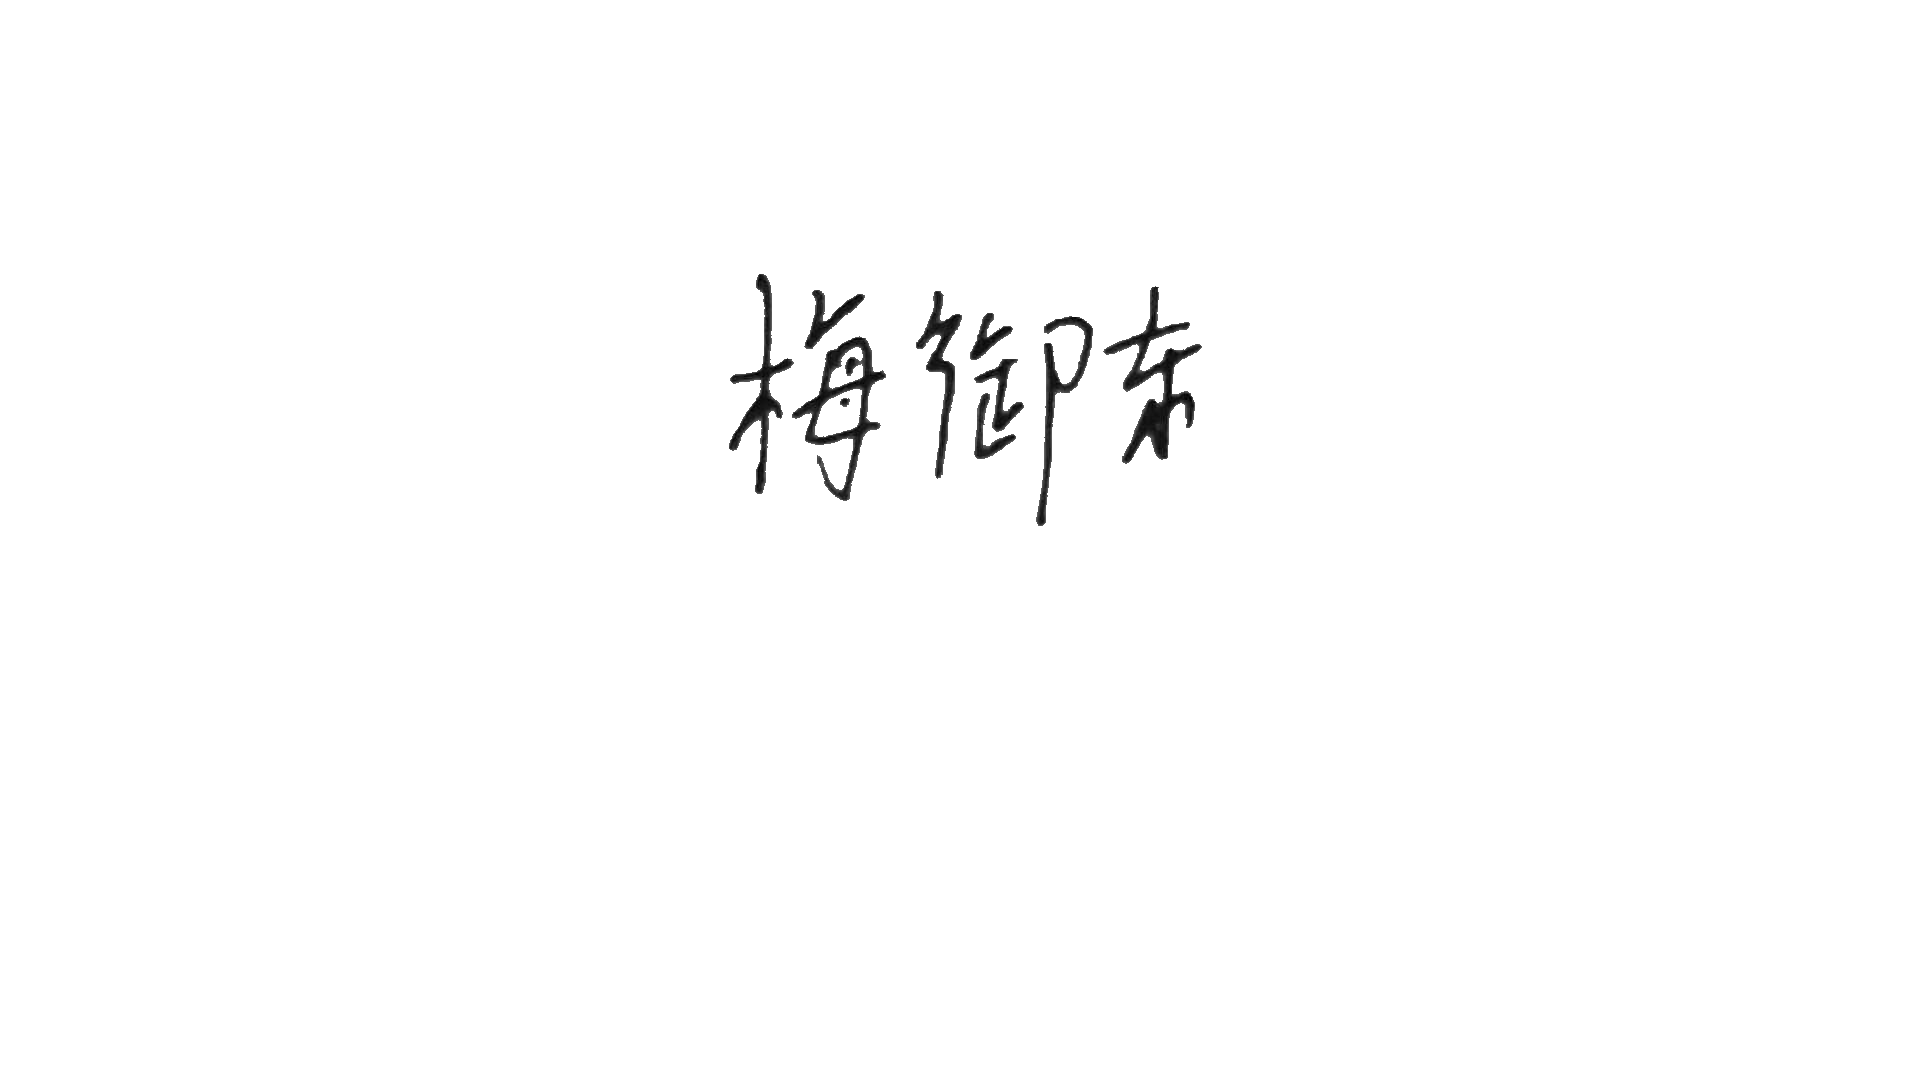 梅御东